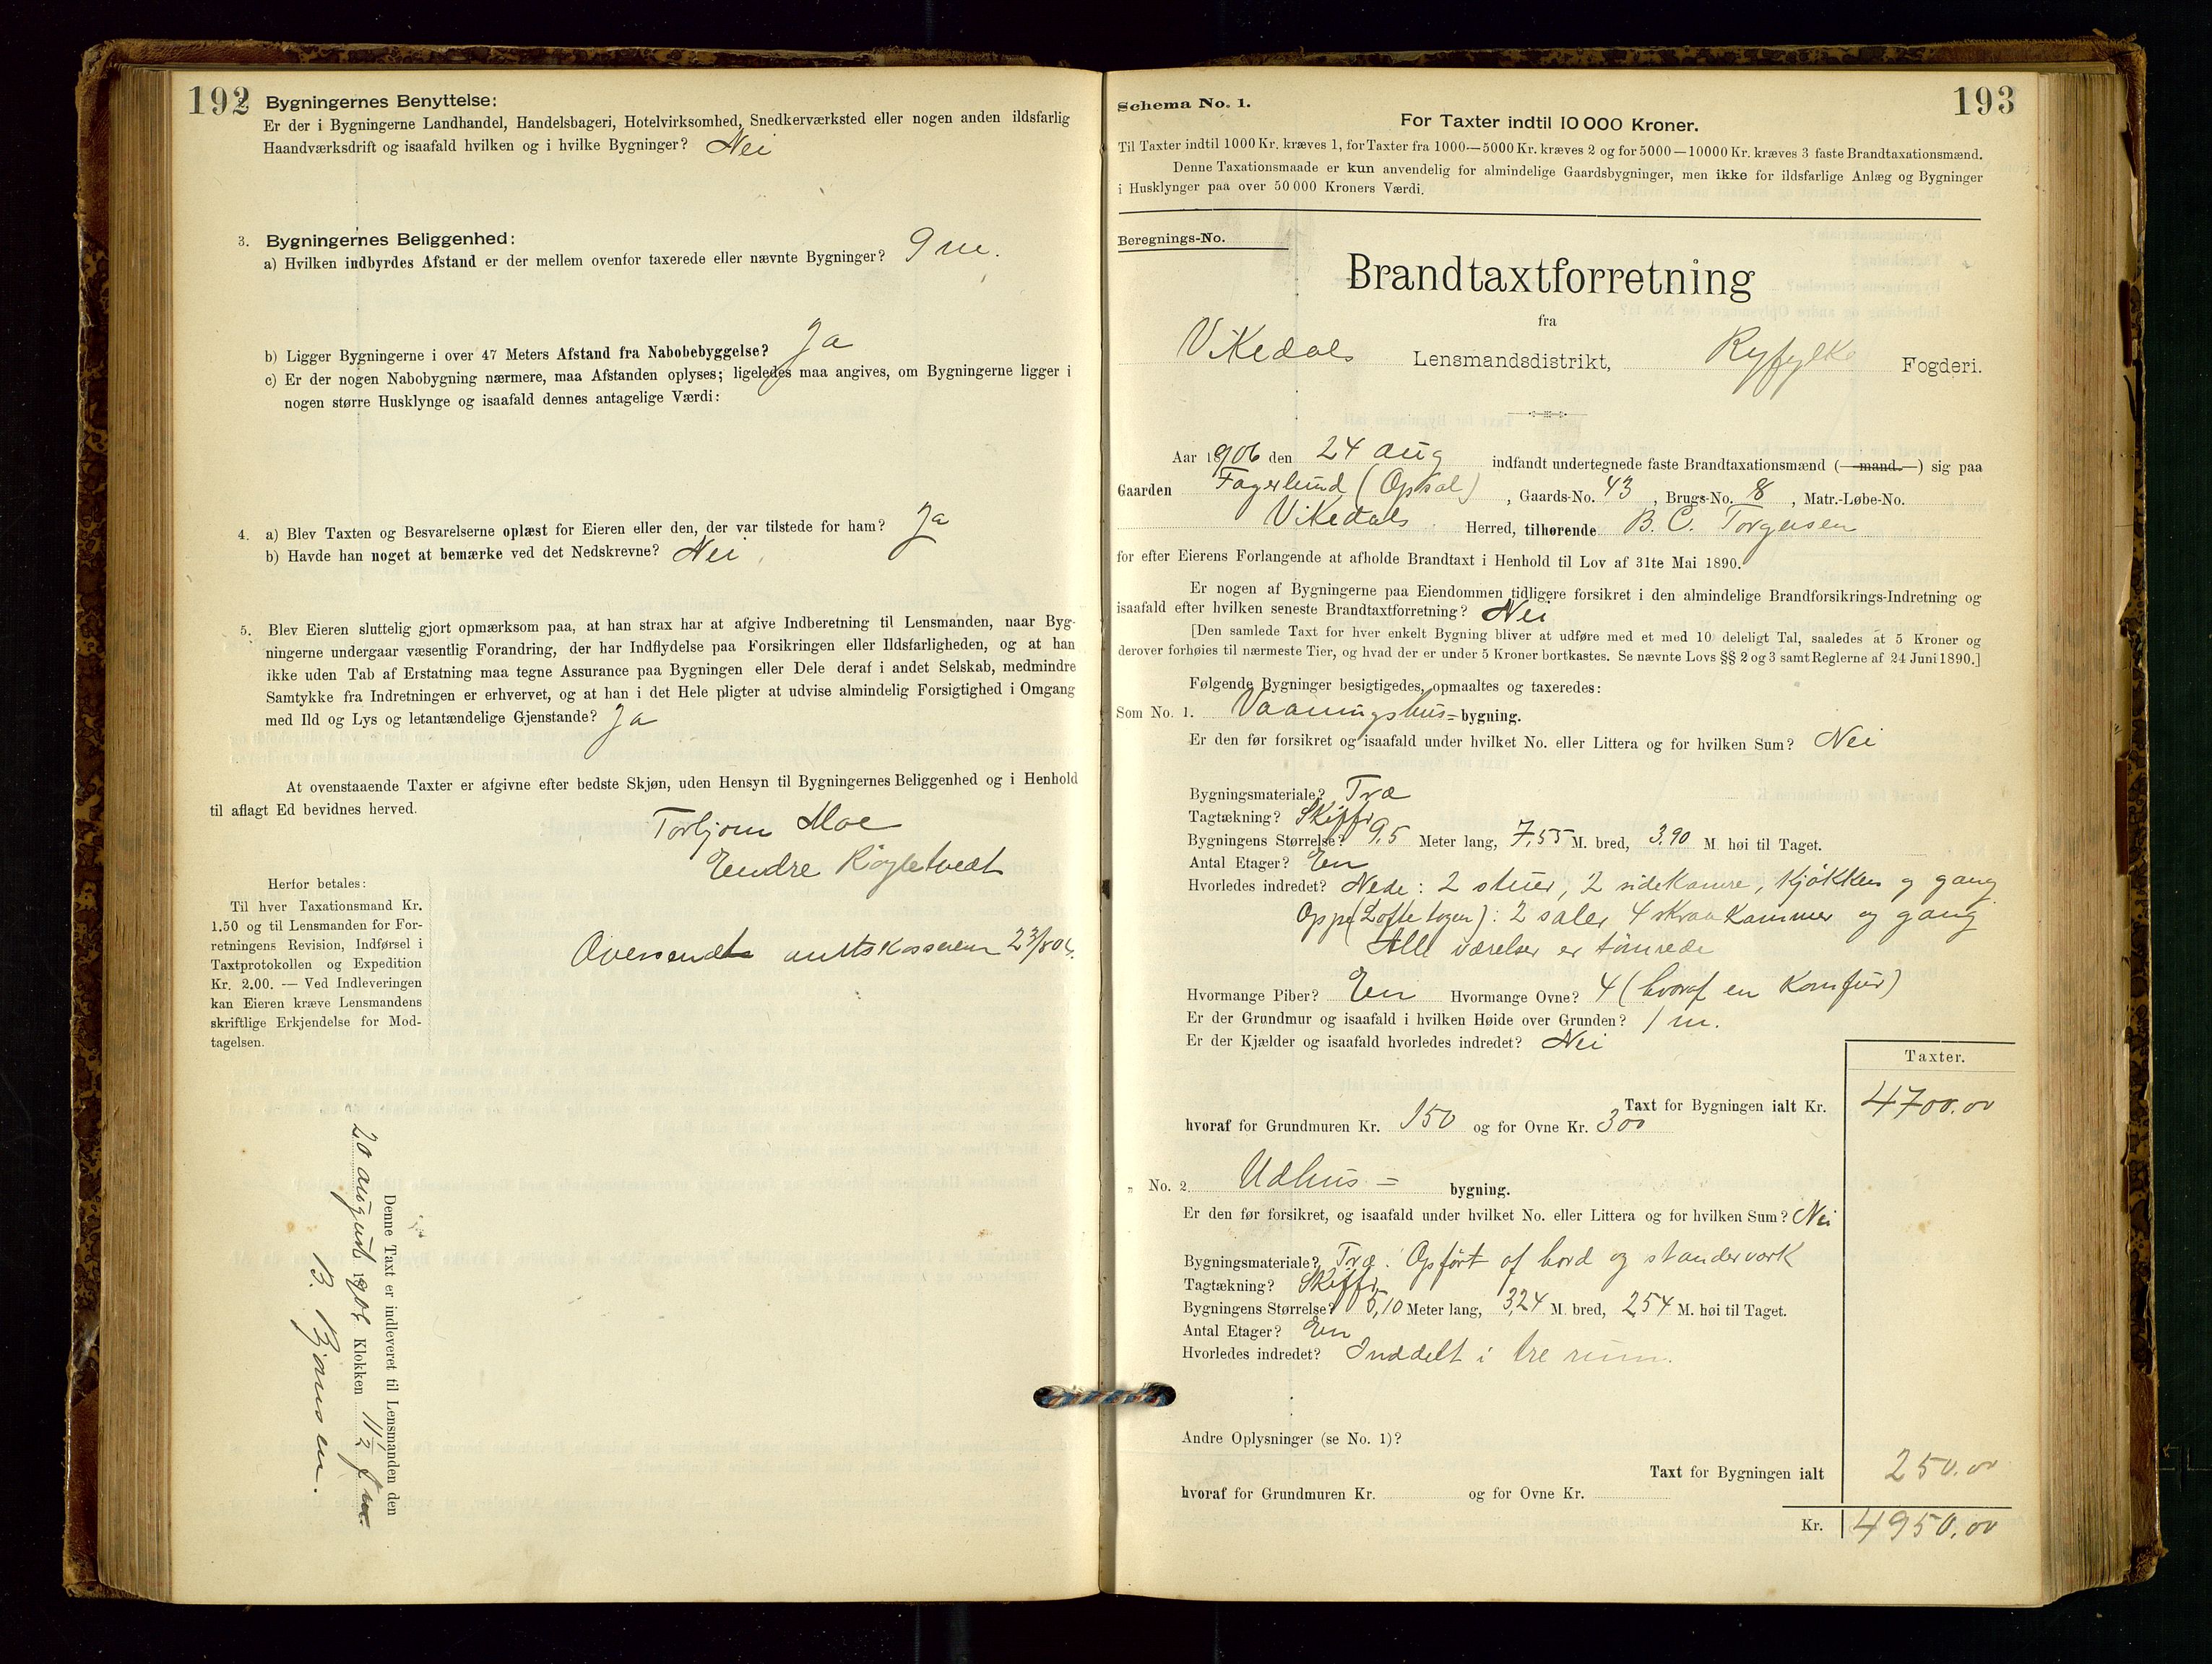 192
Bygningernes Benyttelse:
Er der i Bygningerne Landhandel, Handelsbageri, Hotelvirksomhed, Snedkerværksted eller nogen anden ildsfarlig
Haandværksdrift og isaafald hvilken og i hvilke Bygninger? Nei
3. Bygningernes Beliggenhed:
a) Hvilken indbyrdes Afstand er der mellem ovenfor taxerede eller nævnte Bygninger? 9 m.
b) Ligger Bygningerne i over 47 Meters Afstand fra Nabobebyggelse? Ja
c) Er der nogen Nabobygning nærmere, maa Afstanden oplyses; ligeledes maa angives, om Bygningerne ligger i
nogen større Husklynge og isaafald dennes antagelige Værdi:
4. a) Blev Taxten og Besvarelserne oplæst for Eieren eller den, der var tilstede for ham? Ja
b) Havde han noget at bemærke ved det Nedskrevne? Nei
5. Blev Eieren sluttelig gjort opmærksom paa, at han strax har at afgive Indberetning til Lensmanden, naar Byg-
ningerne undergaar væsentlig Forandring, der har Indflydelse paa Forsikringen eller Ildsfarligheden, og at han
ikke uden Tab af Erstatning maa tegne Assurance paa Bygningen eller Dele deraf i andet Selskab, medmindre
Samtykke fra Indretningen er erhvervet, og at han i det Hele pligter at udvise almindelig Forsigtighed i Omgang
med Ild og Lys og letantændelige Gjenstande? Ja
At ovenstaaende Taxter er afgivne efter bedste Skjøn, uden Hensyn til Bygningernes Beliggenhed og i Henhold
til aflagt Ed bevidnes herved.
Torbjørn Moe
Endre
Herfor betales:
Til hver Taxationsmand Kr.
1.50 og til Lensmanden for For-
retningens Revision, Indførsel i
Taxtprotokollen og Expedition
Kr. 2.00. — Ved Indleveringen
kan Eieren kræve Lensmandens
skriftlige Erkjendelse for Mod-
tagelsen.
Oversendt amtskassereren
Denne Taxt er indleveret til Lensmanden den
20 august 1906 Klokken 11½ fm.
B. Bjørnsen.
193
Schema No. 1.
For Taxter indtil 10 000 Kroner.
Til Taxter indtil 1000 Kr. kræves 1, for Taxter fra 1000—5000 Kr. kræves 2 og for 5000—10000 Kr. kræves 3 faste Brandtaxationsmænd.
Denne Taxationsmaade er kun anvendelig for almindelige Gaardsbygninger, men ikke for ildsfarlige Anlæg og Bygninger
i Husklynger paa over 50 000 Kroners Værdi.
Beregnings-No.
Brandtaxtforretning
fra
Vikedals Lensmandsdistrikt, Ryfylke Fogderi.
Aar 1906 den 24 aug indfandt undertegnede faste Brandtaxationsmænd (—mand.—) sig paa
Gaarden Fagerlund (Opsal), Gaards-No. 43, Brugs-No. 8, Matr.-Løbe-No.
Vikedals Herred, tilhørende B. C. Torgersen
for efter Eierens Forlangende at afholde Brandtaxt i Henhold til Lov af 31te Mai 1890.
Er nogen af Bygningerne paa Eiendommen tidligere forsikret i den almindelige Brandforsikrings-Indretning og
isaafald efter hvilken seneste Brandtaxtforretning? Nei
[Den samlede Taxt for hver enkelt Bygning bliver at udføre med et med 10 deleligt Tal, saaledes at 5 Kroner og
derover forhøies til nærmeste Tier, og hvad der er under 5 Kroner bortkastes. Se nævnte Lovs §§ 2 og 3 samt Reglerne af 24 Juni 1890.]
Følgende Bygninger besigtigedes, opmaaltes og taxeredes:
Som No. 1. Vaaningshus=bygning.
Er den før forsikret og isaafald under hvilket No. eller Littera og for hvilken Sum? Nei
Bygningsmateriale? Træ
Tagtækning? Skiffer
Bygningens Størrelse? 9,5 Meter lang, 7,55 M. bred, 3,90 M. høi til Taget.
Antal Etager? En
Hvorledes indredet? Nede: 2 stuer, 2 sidekamre, kjøkken og gang
Oppe : 2 saler 4 skraakammer og gang
Alle værelser er tømrede
Hvormange Piber? En Hvormange Ovne? 4 (hvoraf en Komfur)
Er der Grundmur og isaafald i hvilken Høide over Grunden? 1 m.
Er der Kjælder og isaafald hvorledes indredet? Nei
Taxter.
Taxt for Bygningen ialt Kr. 4700.00
hvoraf for Grundmuren Kr. 150 og for Ovne Kr. 300
„ No. 2 Udhus = bygning.
Er den før forsikret, og isaafald under hvilket No. eller Littera og for hvilken Sum? Nei
Bygningsmateriale? Træ. Opført af bord og standerværk
Tagtækning? Skiffer
Bygningens Størrelse? 5,10 Meter lang, 3,24 M. bred, 2,54 M. høi til Taget.
Antal Etager? En
Hvorledes indredet? Inddelt i tre rum.
Andre Oplysninger (se No. 1)?
Taxt for Bygningen ialt 250.00
hvoraf for Grundmuren Kr. og for Ovne Kr.
Kr. 4950.00